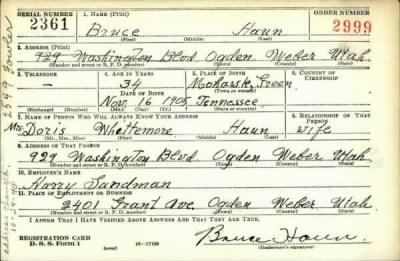 SERIAL NUMBER 1. NAME (Print) ORDER NUMBER
2361 Bruce Haun 2999
(First) (Middle) (Last)
2. ADDRESS (Print)
929 Washington Blvd. Ogden Weber Utah
(Number and street or R. F. D. number) (Town) (County) (State)
3. TELEPHONE 4. AGE IN YEARS 5. PLACE OF BIRTH 6. COUNTRY OF CITIZENSHIP
— 34 Mohawk, Green
DATE OF BIRTH
Nov. 16 1905 Tennessee
(Exchange) (Number) (Mo.) (Day) (Yr.) (State or country)
7. NAME OF PERSON WHO WILL ALWAYS KNOW YOUR ADDRESS 8. RELATIONSHIP OF THAT PERSON
Mrs Doris Whettemore Haun Wife
(Mr., Mrs., Miss) (First) (Middle) (Last)
9. ADDRESS OF THAT PERSON
929 Washington Blvd Ogden Weber Utah
(Number and street or R. F. D. number) (Town) (County) (State)
10. EMPLOYER'S NAME
Harry Sandman
11. PLACE OF EMPLOYMENT OR BUSINESS
2401 Grant Ave. Ogden Weber Utah
(Number and street or R. F. D. number) (Town) (County) (State)
I AFFIRM THAT I HAVE VERIFIED ABOVE ANSWERS AND THAT THEY ARE TRUE.
REGISTRATION CARD
D. S. S. Form 1 (over) Bruce Haun
(Registrant's signature)
2549 Fowler